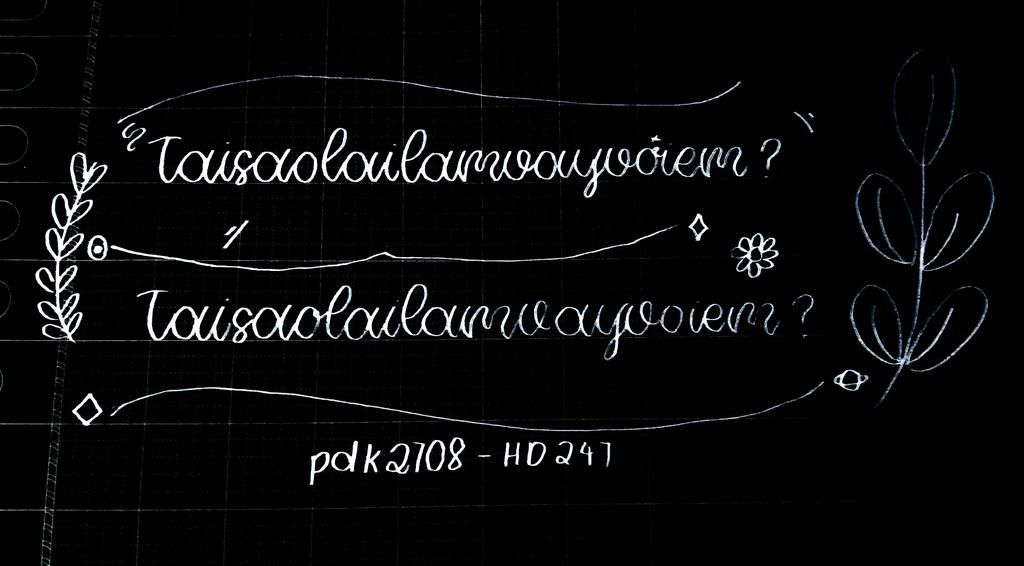 "Taisaolailamvoayvoiem?"
Taisaolailamvayvoiem?
pdk2708 - HD247